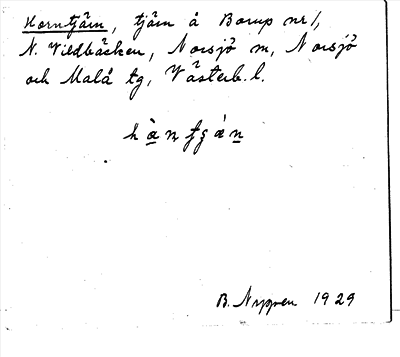 Horntjärn, tjärn å Borup nr 1,
N. Vildbäcken, Norsjö sn, Norsjö
och Malå tg, Västerb. l.
B. Nygren 1929